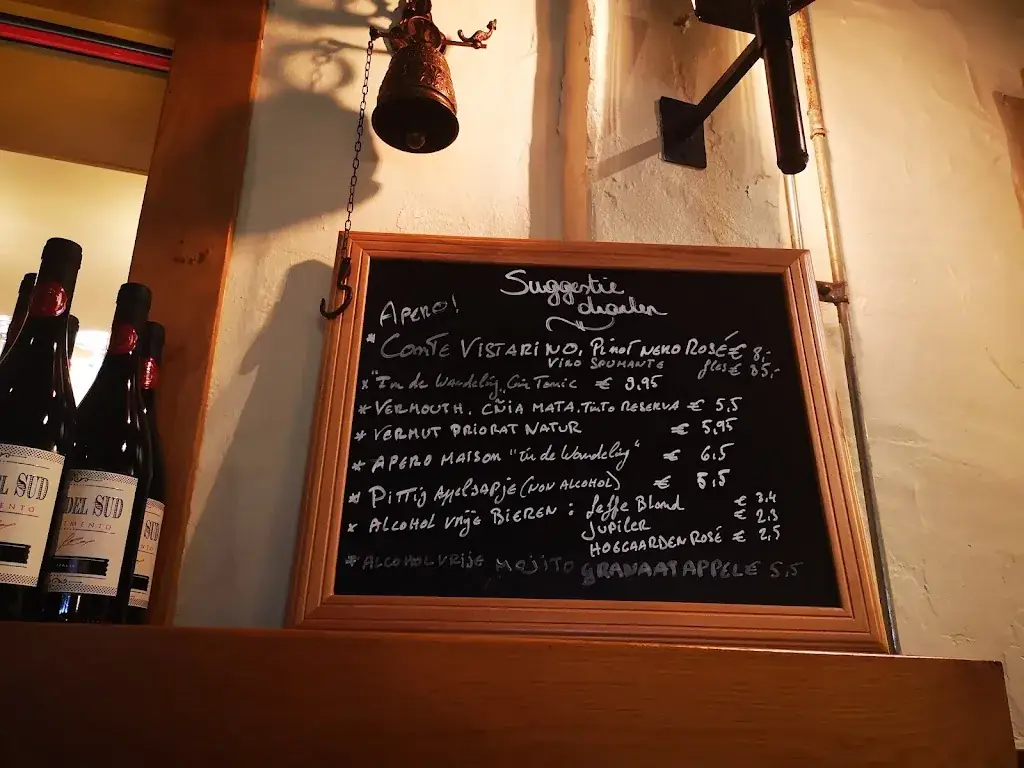 Suggestie
dranken
APERO!
* COMTE VISTARINO, PINOT NERO ROSÉ € 8,-
VINO SPUMANTE fles € 35,-
* "In de Wandeling" Gin Tonic € 9.95
* VERMOUTH. CÑIA MATA. TINTO RESERVA € 5,5
* VERMUT PRIORAT NATUR € 5,95
* APERO MAISON "In de Wandeling" € 6.5
* PITTIG APPELSAPJE (NON ALCOHOL) € 5,5
* ALCOHOL VRIJE BIEREN : Leffe Blond € 3.4
JUPILER € 2,3
HOEGAARDEN ROSÉ € 2,5
* ALCOHOLVRIJE MOJITO GRANAATAPPELE 5,5
DEL SUD
DEL SUD
MENTO